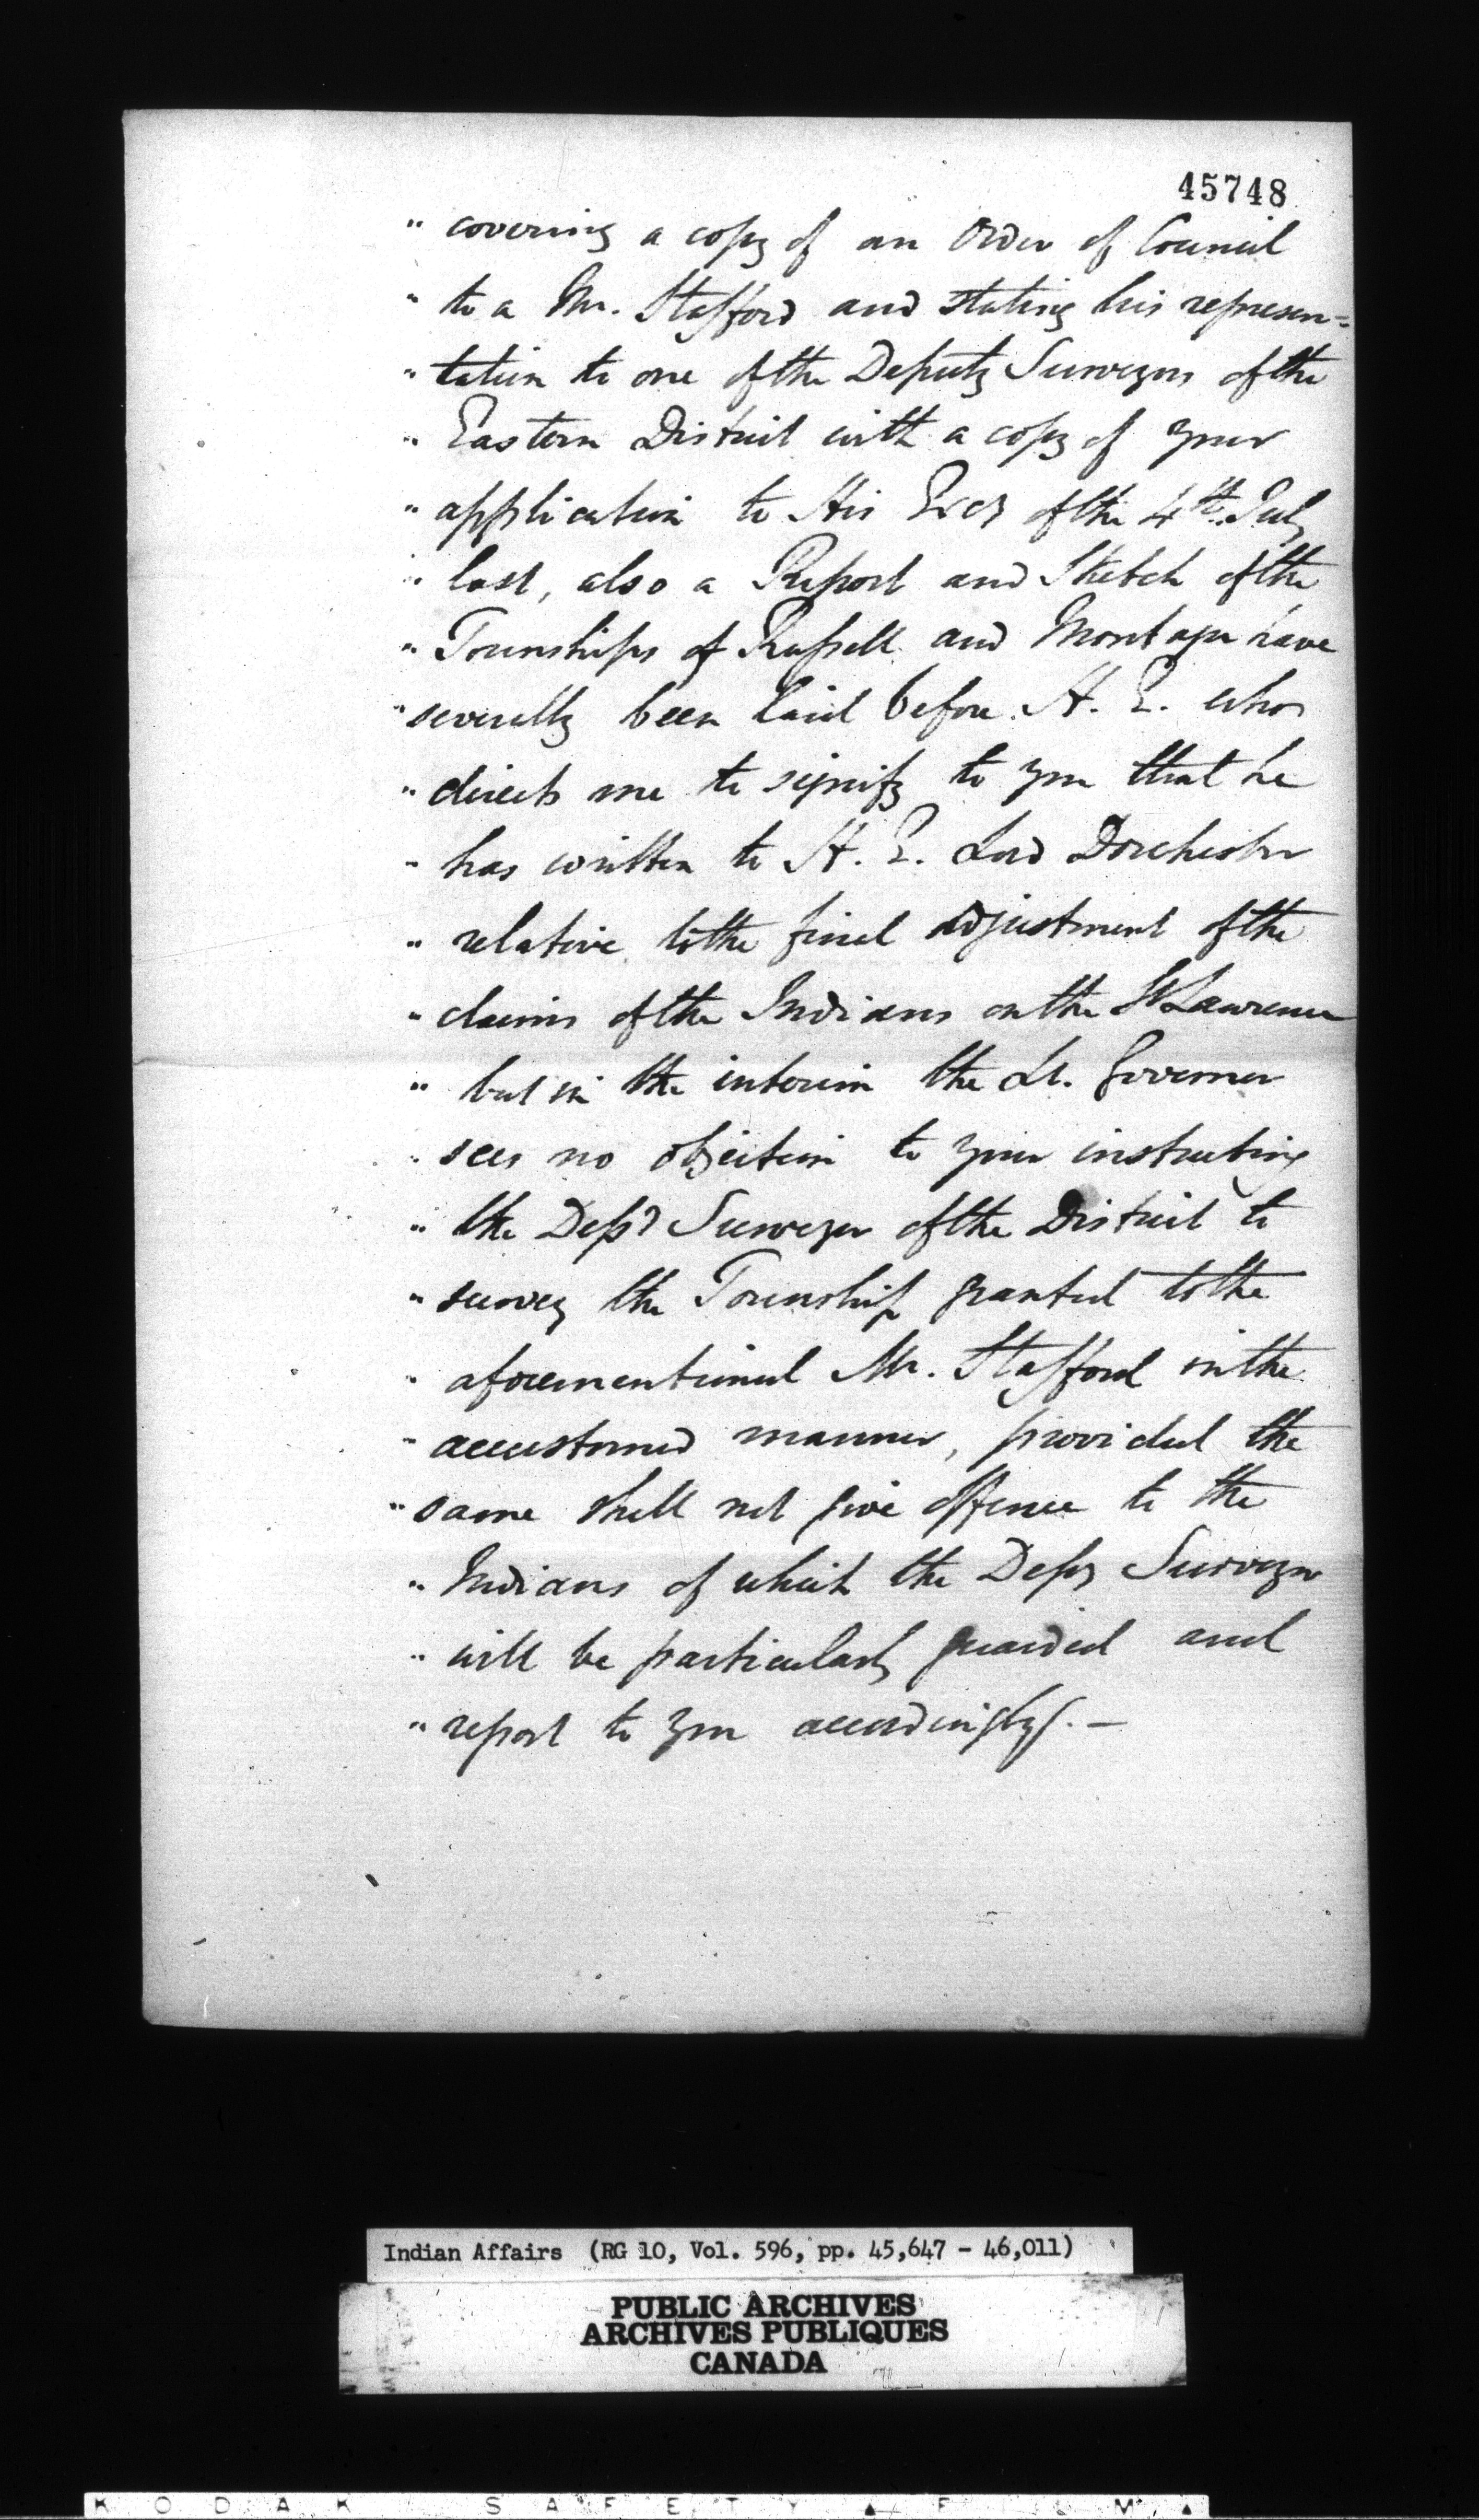 45748
" covering a copy of an Order of Council
" to a Mr. Stafford and stating his represen=
" tation to one of the Deputy Surveyors of the
" Eastern District with a copy of your
" application to His Ex'cy of the 4th. July
" last, also a Report and Sketch of the
" Townships of Russell and Montague have
" severally been laid before H. E. who
" directs me to signify to you that he
" has written to H. E. Lord Dorchester
" relative to the final adjustment of the
" claims of the Indians on the St Lawrence
" but in the interim the Lt. Governor
" sees no objection to your instructing
" the Depy Surveyor of the District to
" survey the Township granted to the
" aforementioned Mr. Stafford in the
" accustomed manner, provided the
" same shall not give offence to the
" Indians of which the Depy Surveyor
" will be particularly guarded and
" report to you accordingly. —
Indian Affairs (RG 10, Vol. 596, pp. 45,647 - 46,011)
PUBLIC ARCHIVES
ARCHIVES PUBLIQUES
CANADA
KODAK SAFETY ▲ F M ▲